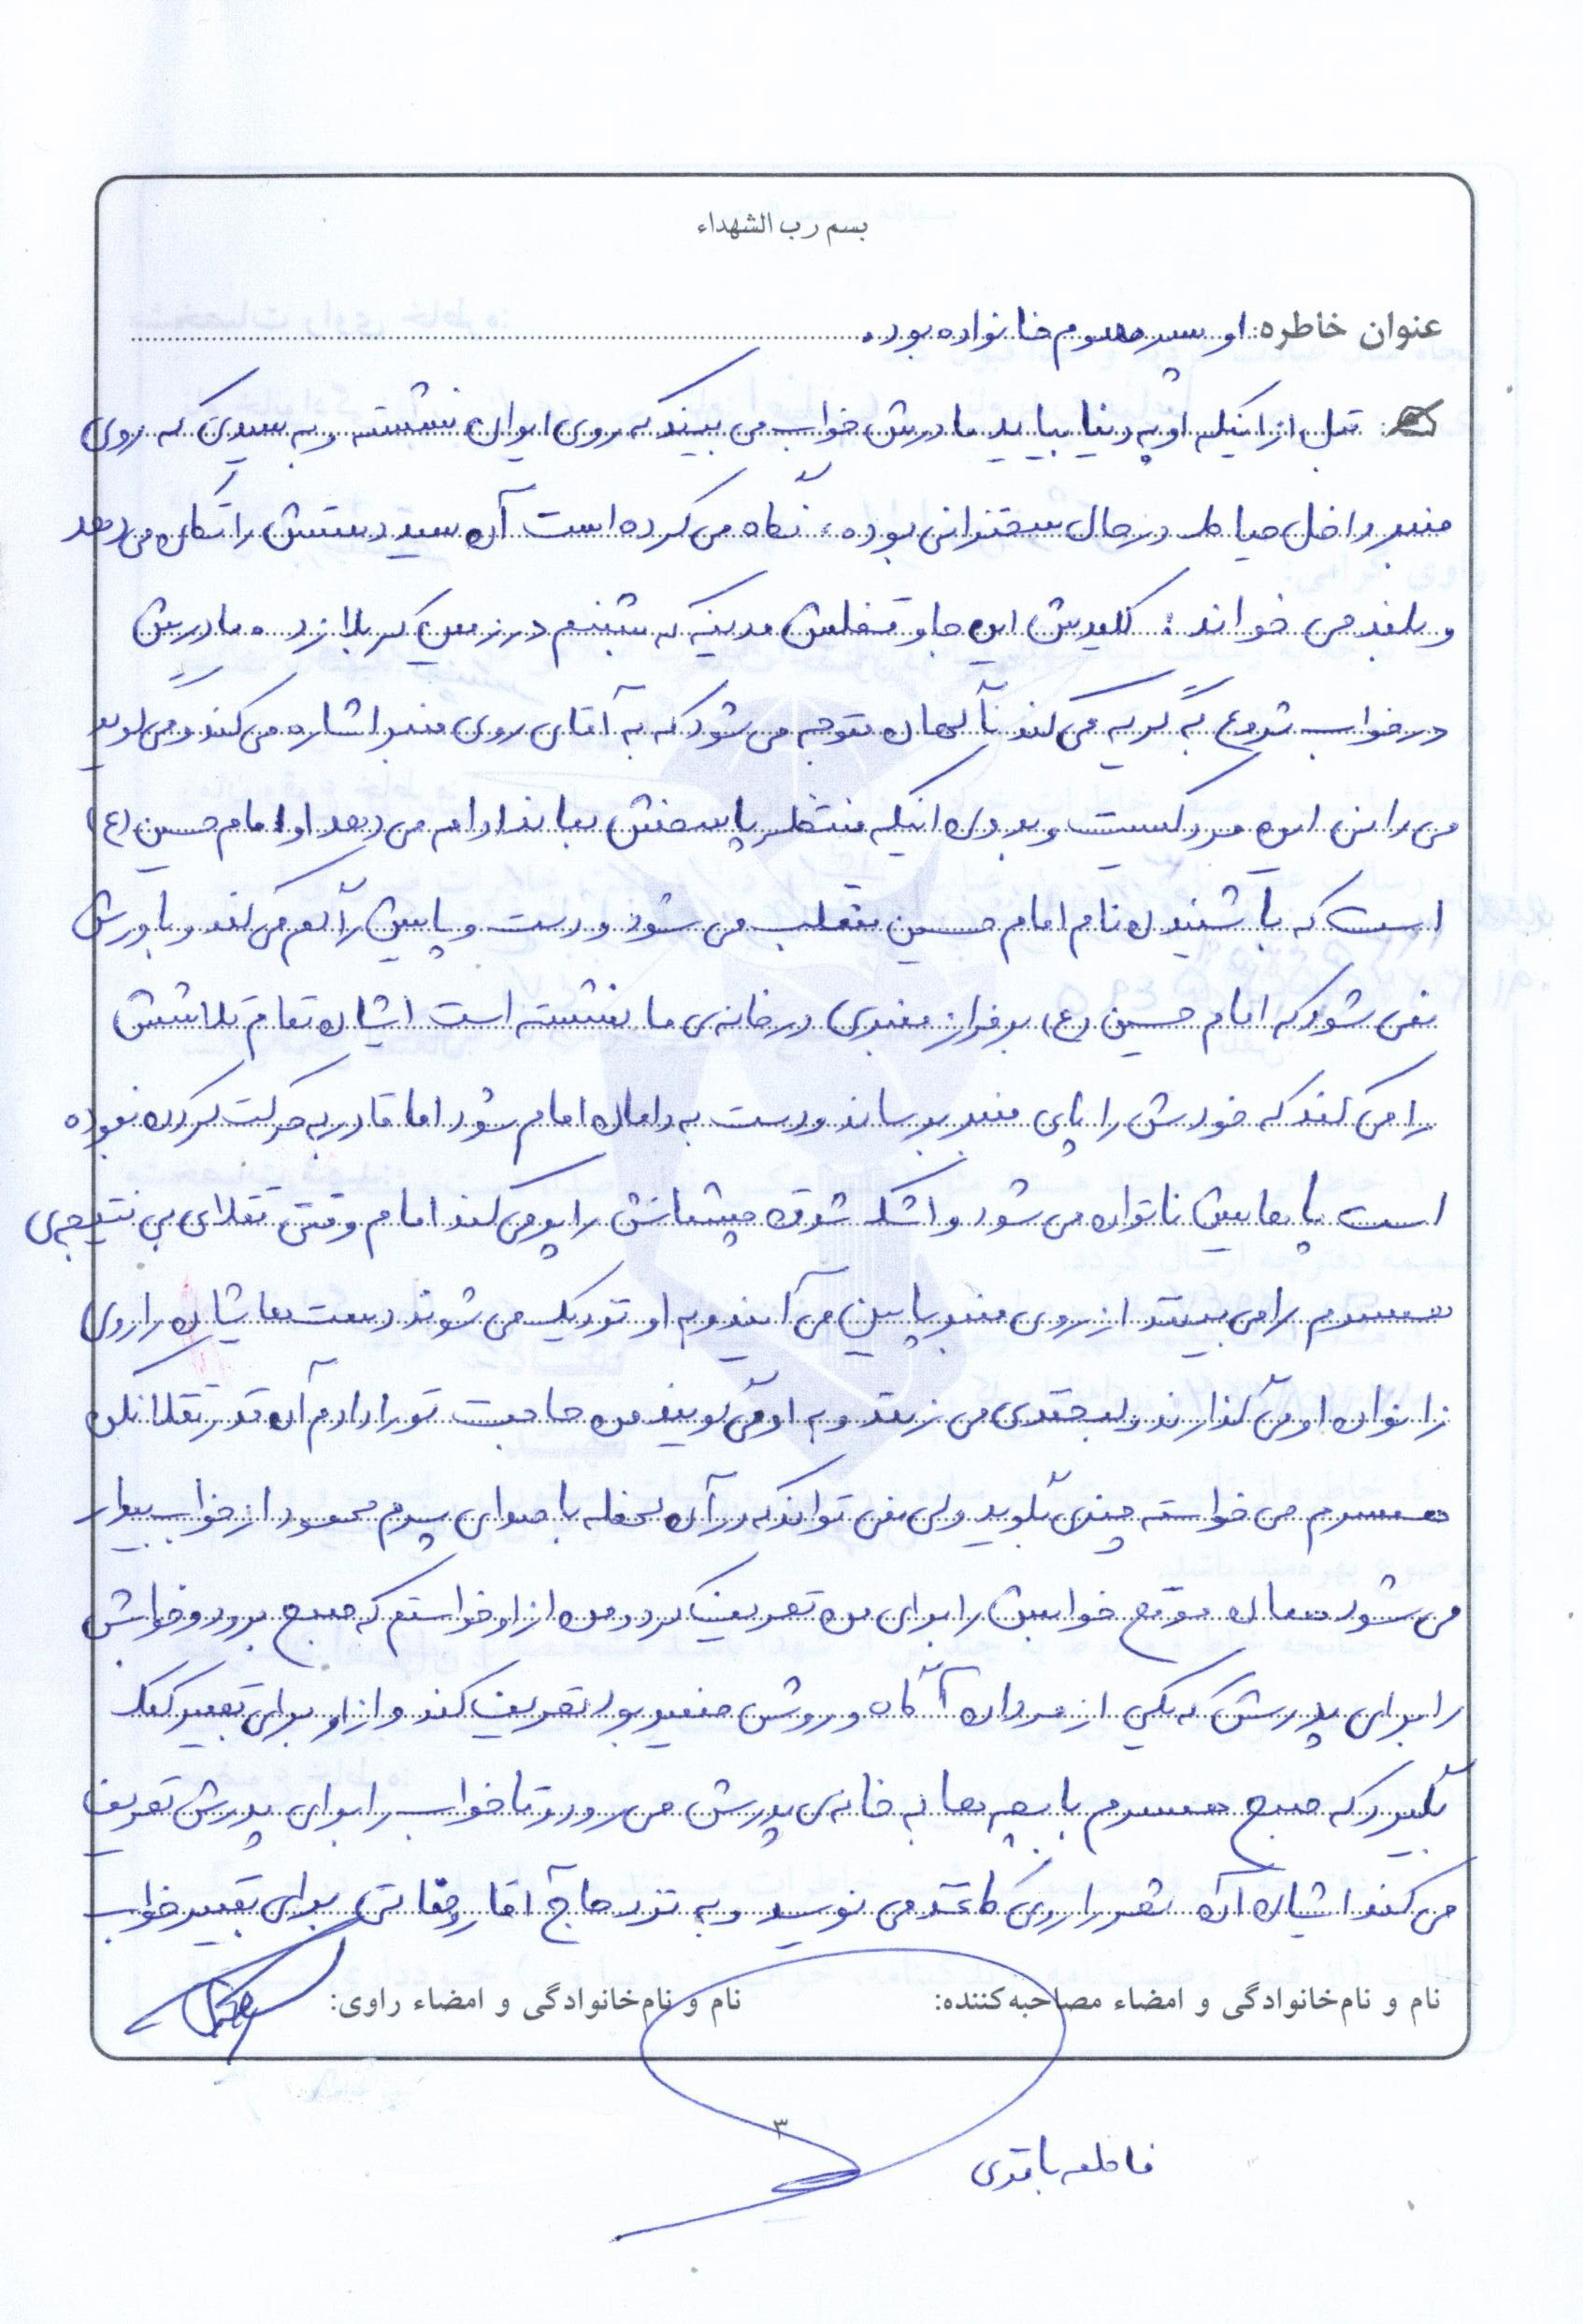 بسم رب الشهداء
عنوان خاطره: او پسر سوم خانواده بود.
قبل از اینکه او به دنیا بیاید مادرش خواب می بیند که روی ایوان نشسته و به سیدی که روی
منبر داخل حیاط در حال سخنرانی بوده، نگاه می کرده است آن سید دستش را تکان می دهد
و بلند می خواند: کلیدش این جا و قفلش مدینه که شبنم در زمین کربلا زد. مادرش
در خواب شروع به گریه می کند ناگهان متوجه می شود که به آقای روی منبر اشاره می کند و می گوید
می دانی این مرد کیست و بدون اینکه منتظر پاسخش بماند ادامه می دهد او امام حسین (ع)
است که با شنیدن نام امام حسین منقلب می شود و دست و پایش را گم می کند و باورش
نمی شود که امام حسین (ع) بر فراز منبری در خانه ی ما نشسته است ایشان تمام تلاشش
را می کند که خودش را پای منبر برساند و دست به دامان امام شود اما قادر به حرکت کردن نبوده
است پاهایش ناتوان می شود و اشک شوق چشمانش را پر می کند امام وقتی تقلای بی نتیجه ی
همسرم را می بیند از روی منبر پایین می آیند و به او نزدیک می شوند دست هایشان را روی
زانوان او می گذارند و لبخندی می زنند و به او می گویند من حاجت تو را دادم آن قدر تقلا نکن
همسرم می خواسته چیزی بگوید ولی نمی تواند که در آن لحظه با صدای پسرم محمود از خواب بیدار
می شود همان موقع خوابش را برای من تعریف کرد و من از او خواستم که صبح برود و خوابش
را برای پدرش که یکی از مردان آگاه و روشن ضمیر بود تعریف کند و از او برای تعبیر کمک
بگیرد که صبح همسرم با بچه ها به خانه ی پدرش می رود و تا خواب را برای پدرش تعریف
می کند ایشان آن شعر را روی کاغذ می نویسد و به نزد حاج آقا برای تعبیر خواب
نام و نام خانوادگی و امضاء مصاحبه کننده: نام و نام خانوادگی و امضاء راوی:
۳
فاطمه باقری